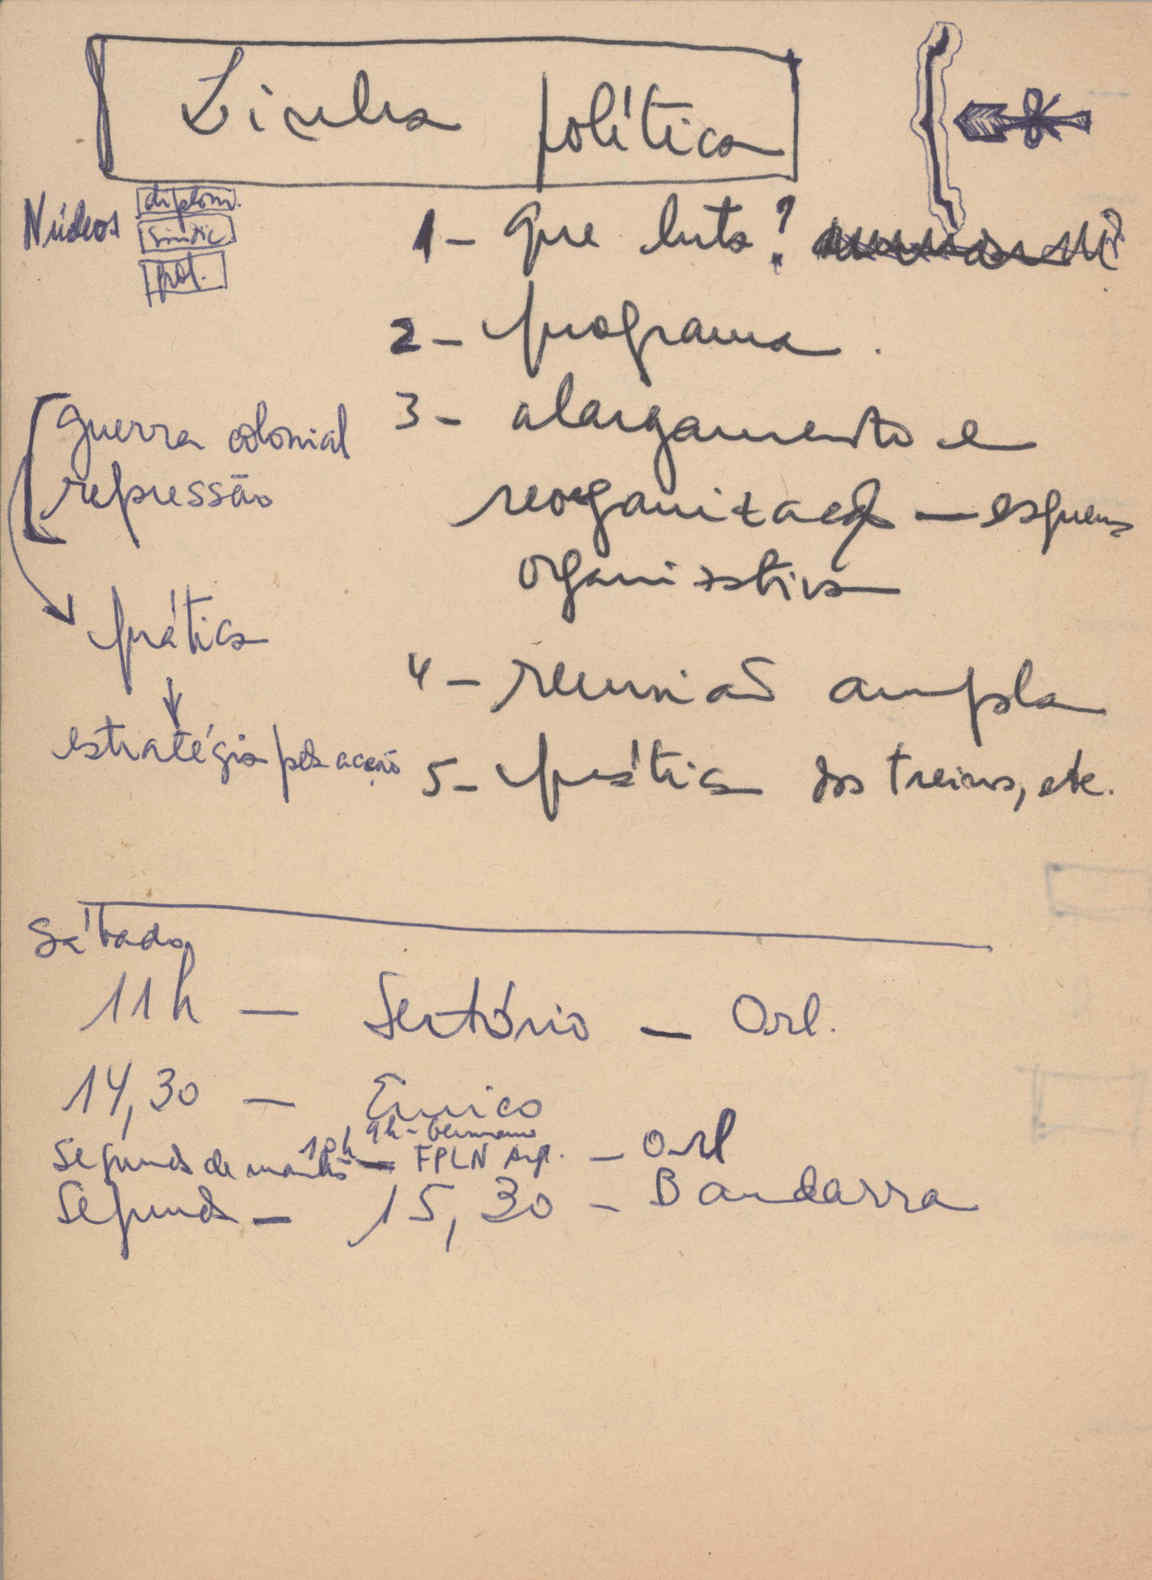 Linha política
Núcleos
diplom.
sindic
pol.
1 - que luta?
2 - programa.
3 - alargamento e
reorganização — esquema
organizativa
4 - reunião ampla
5 - prática dos treinos, etc.
guerra colonial
repressão
prática
estratégia pela acção
Sábado
11h — Sertório — Orl.
14,30 — Eurico
9h - Germano
Segunda de manhã 10h — FPLN Arg. — Orl
Segunda — 15,30 - Bandarra